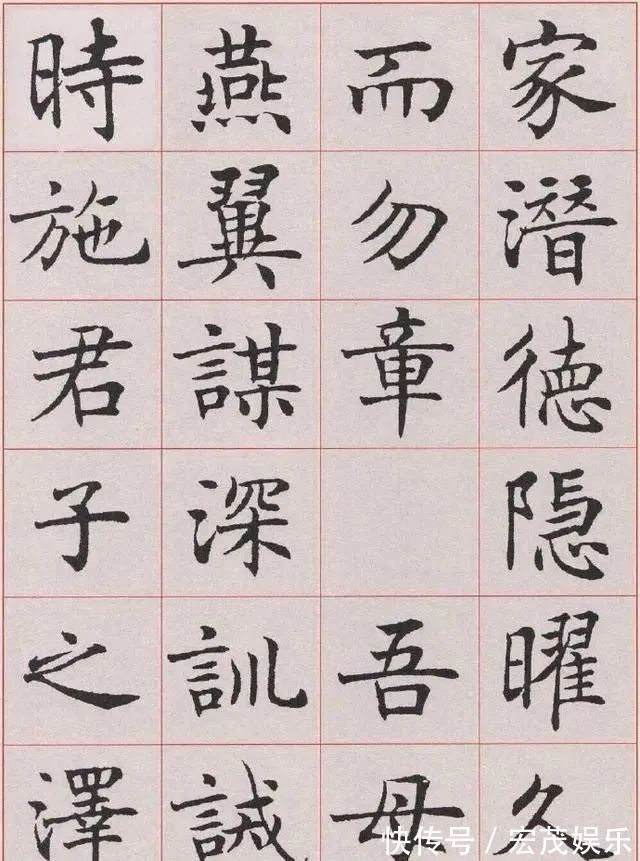 家潛德隱曜久
而勿章 吾母
燕翼謀深訓誡
時施君子之澤
快传号／宏茂娱乐